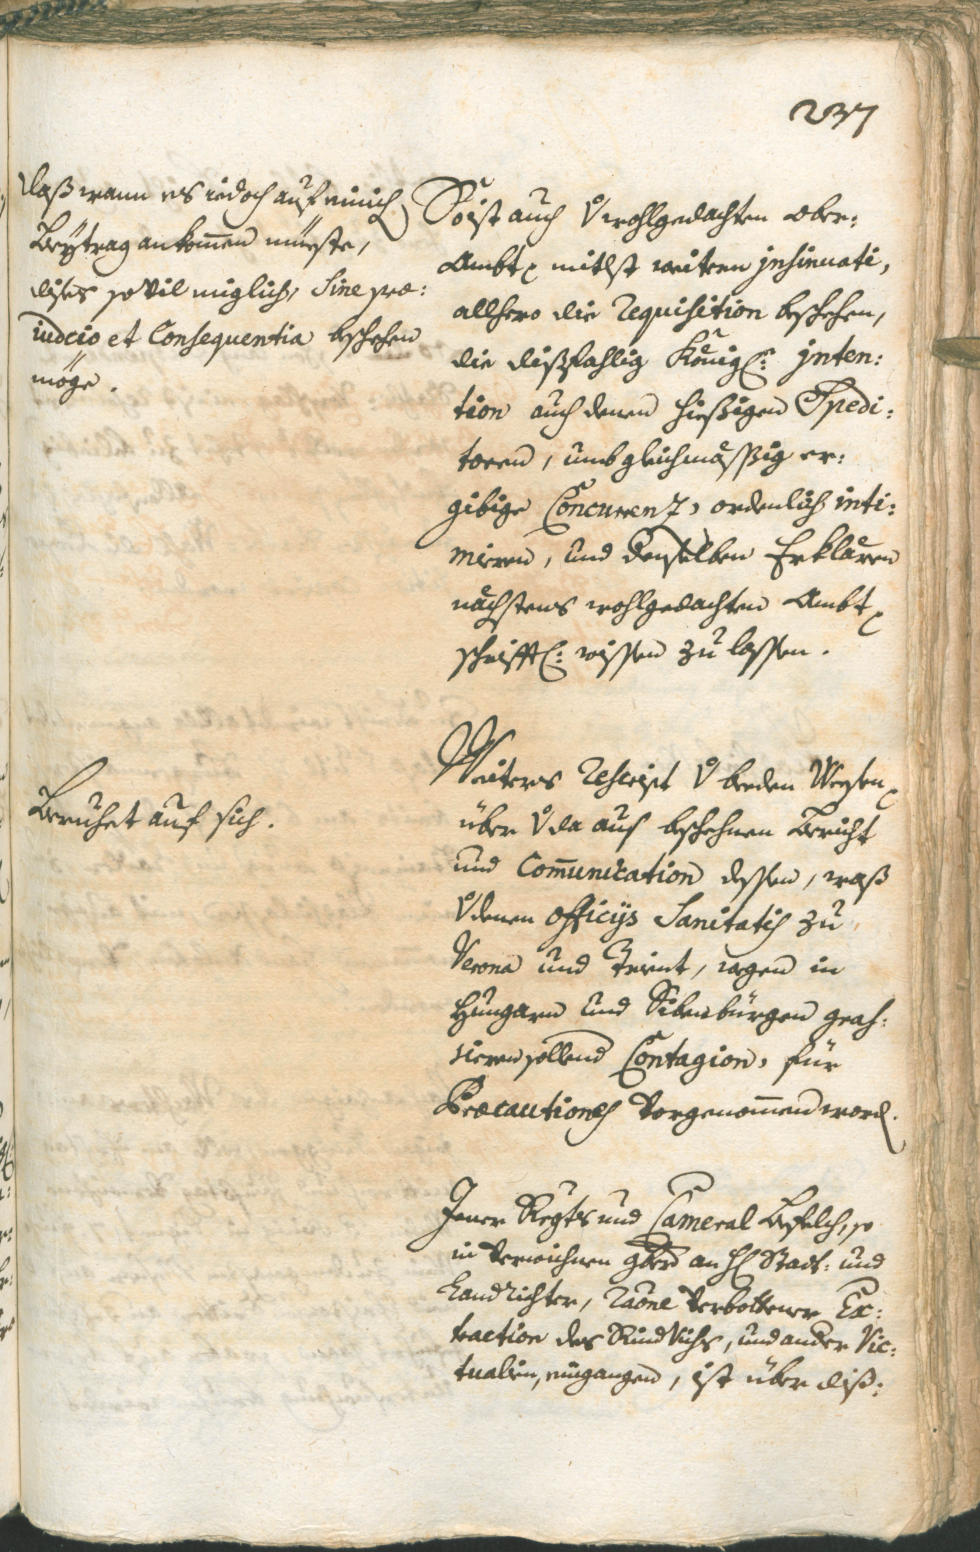 237
daß wann es iedoch auf einich
Beÿtrag ankommen müeste,
dises so vil miglich, Sine præ:
iudicio et Consequentia beschehen
möge.
So ist auch v̊ wolgedachten ober:
Ambt mitlst weitern jnsinuati,
allhero die Requisition beschehen,
die dißfahlig Königl: jnten:
tion auch denen hießigen Spedi:
toren, umb gleichmässig er:
gibige Concurrenz, ordenlich inti:
mieren, und denselben Erklären
nächstens wohlgedachten Ambt
schrifftl: wissen zu lassen.
Beruhet auf sich.
Weiters Rescript v̊ beeden Wesen
über v̊ da auß beschehnen Bericht
und Com̄unication dessen, waß
v̊ denen officijs Sanitatis zu
Verona und Trient, wegen in
Hungarn und Sibenbürgen grah:
sieren sollend Contagion, für
Præcautiones vorgenommen word.
Jener Regts und Cameral Befelch, so
in verwichnen 9ber an H Stadt: und
Landrichter, Raōne verbottener Ex:
traction des Rindvichs, und ander Vic:
tualien, eingangen, ist über diß: